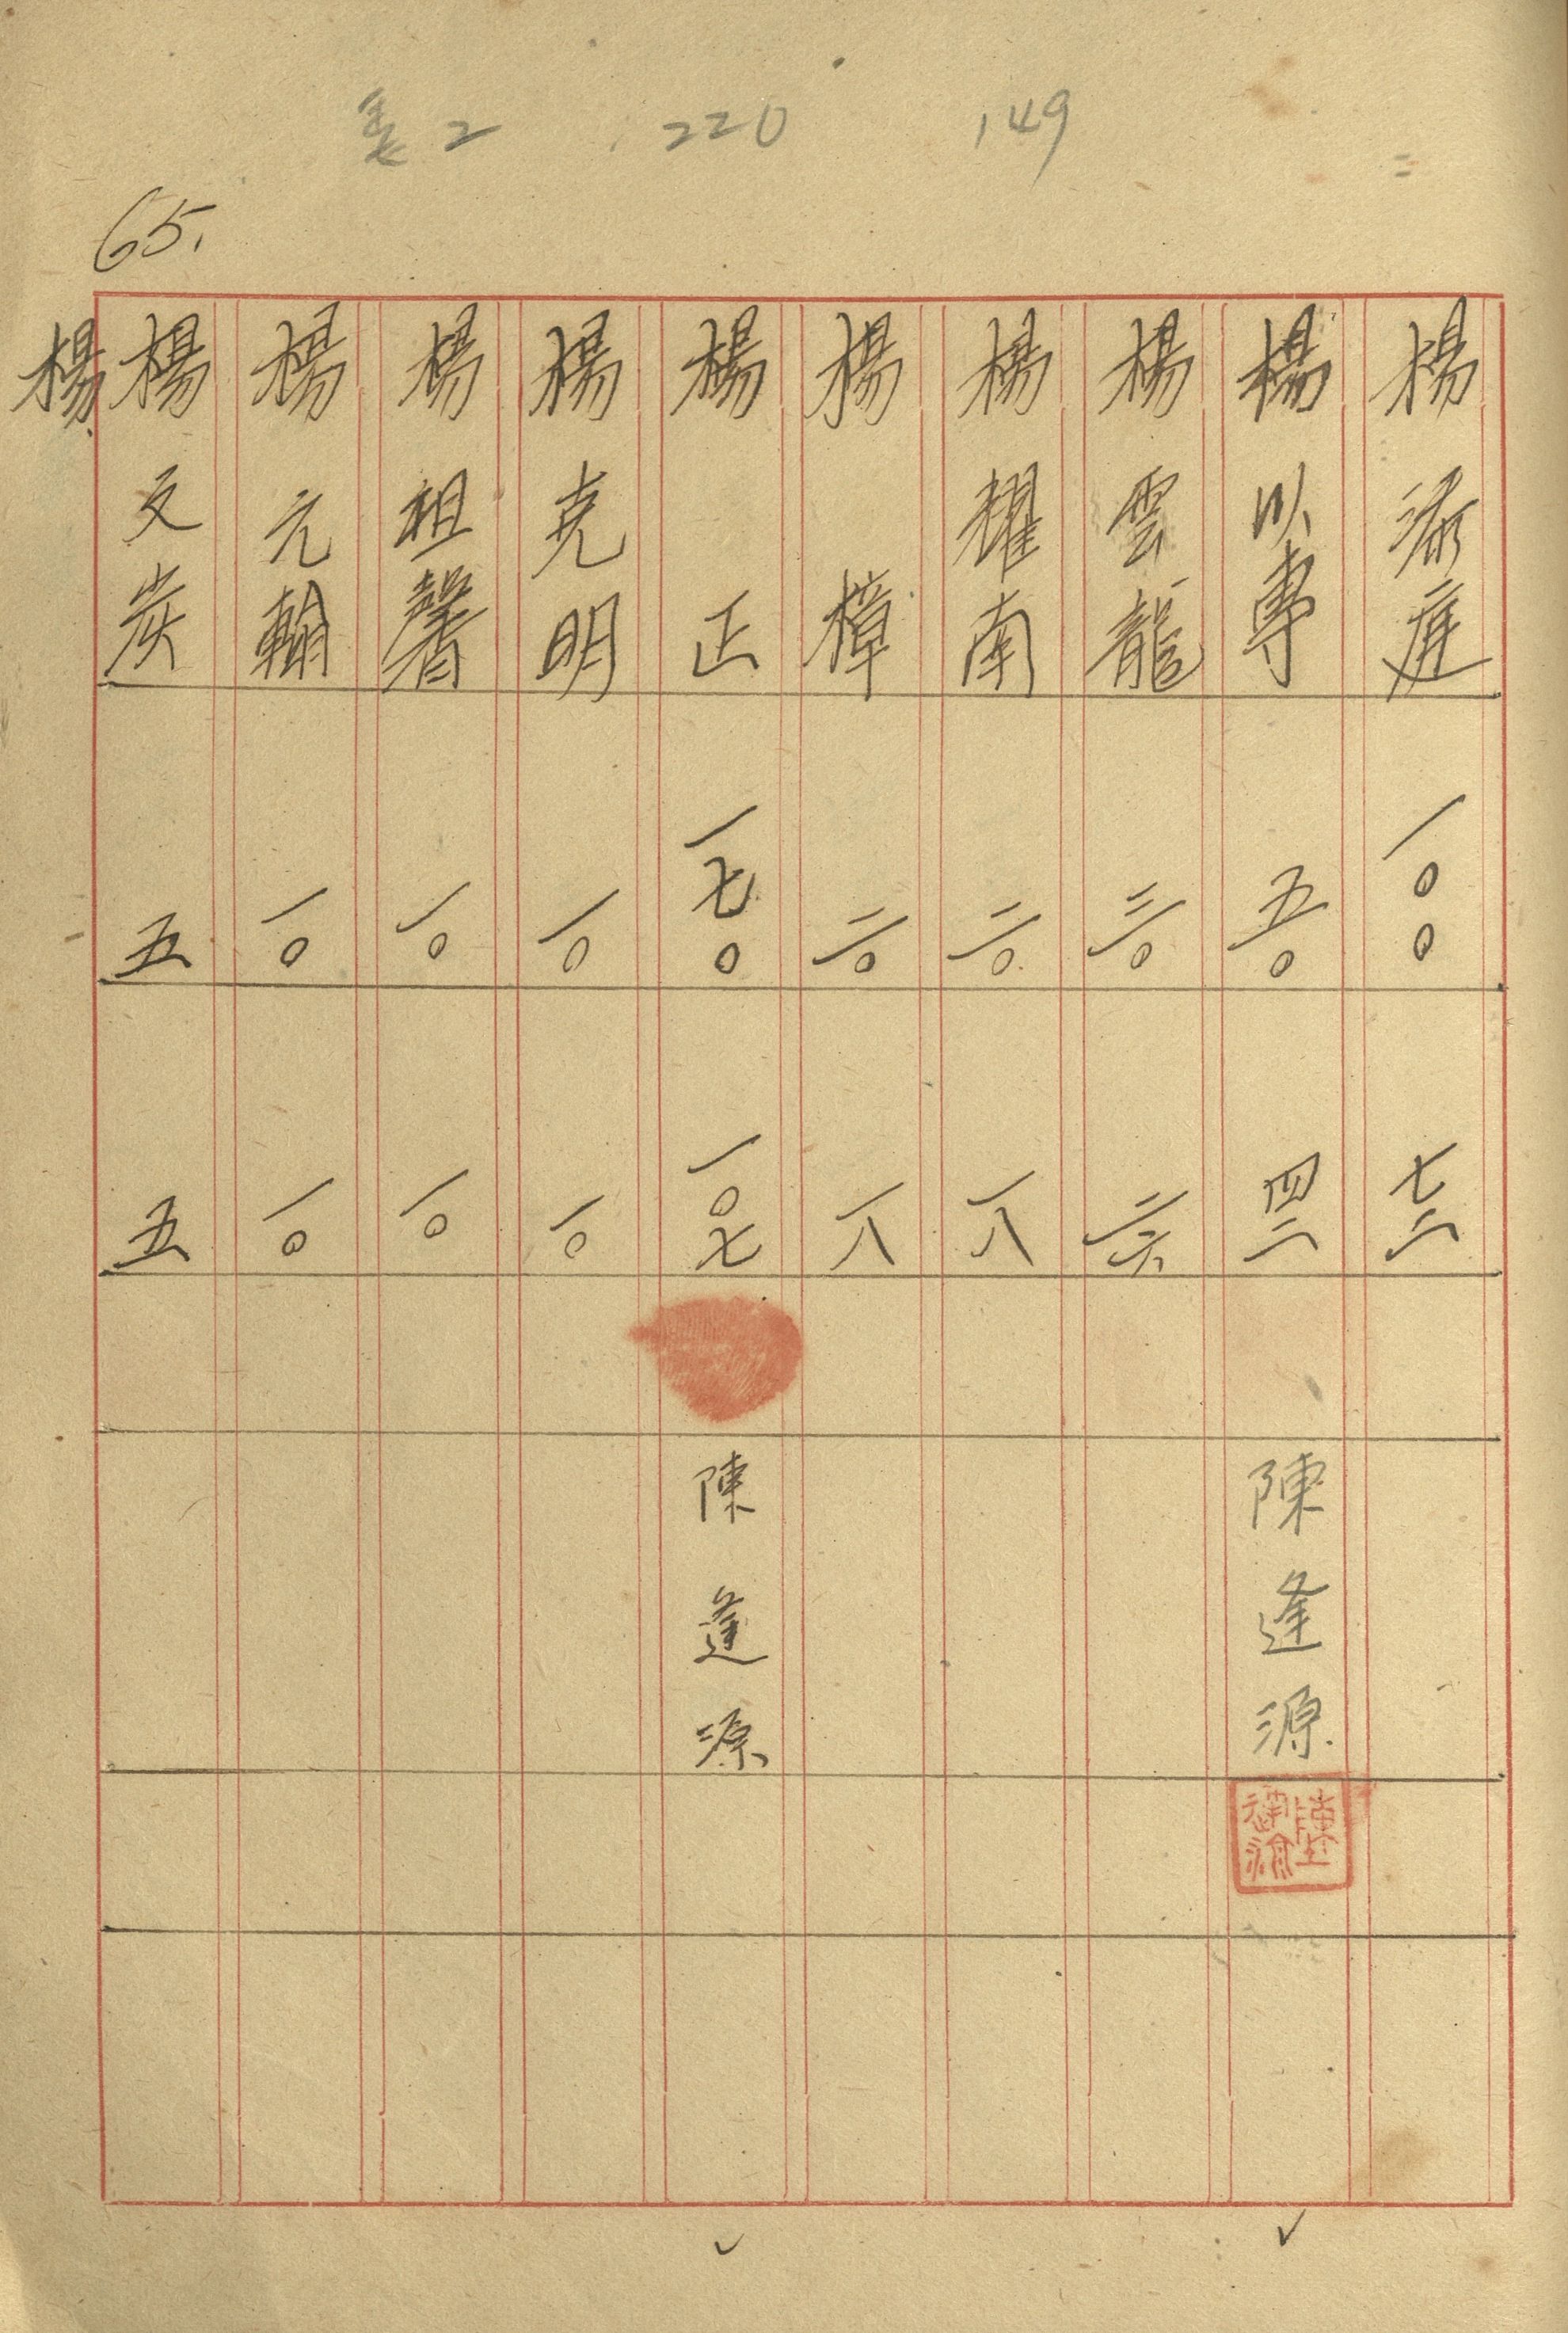 表2 220 149
65.
楊添庭 一〇〇 七二
楊以專 五〇 四二 陳逢源
楊雲龍 三〇 二六
楊耀南 二〇 一八
楊樟 二〇 一八
楊正 一七〇 一〇七 陳逢源
楊克明 一〇 一〇
楊祖馨 一〇 一〇
楊元翰 一〇 一〇
楊文炭 五 五
楊